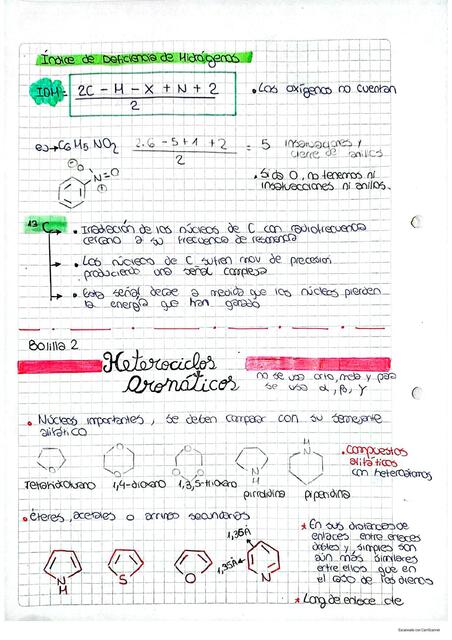 Índice de Deficiencia de Hidrógenos
IDH = 2C - H - X + N + 2
2
• Los oxígenos no cuentan
ej → C6H5NO2 2.6 - 5 + 1 + 2 = 5 insaturaciones y
2 cierre de anillos.
• Si da 0, no tenemos ni
insaturaciones ni anillos.
O N O
13C
• Irradiación de los núcleos de C con radiofrecuencia
cercano a su frecuencia de resonancia
• Los núcleos de C sufren mov de precesión
produciendo una señal compleja
• Esta señal decae a medida que los núcleos pierden
la energía que han ganado
Bolilla 2
Heterociclos
Aromáticos
no se usa orto, meta y para
se usa α, β, γ
• Núcleos importantes, se deben comparar con su semejante
alifático
Tetrahidrofurano 1,4-dioxano 1,3,5-trioxano pirrolidina piperidina
• compuestos
alifáticos
con heteroátomos
• éteres, acetales o aminas secundarias
N H S O N
1,35Å 1,35Å
* En sus distancias de
enlaces entre enlaces
dobles y simples son
aún más similares
entre ellos que en
el caso de los dienos
* Long de enlace cte
Escaneado con CamScanner